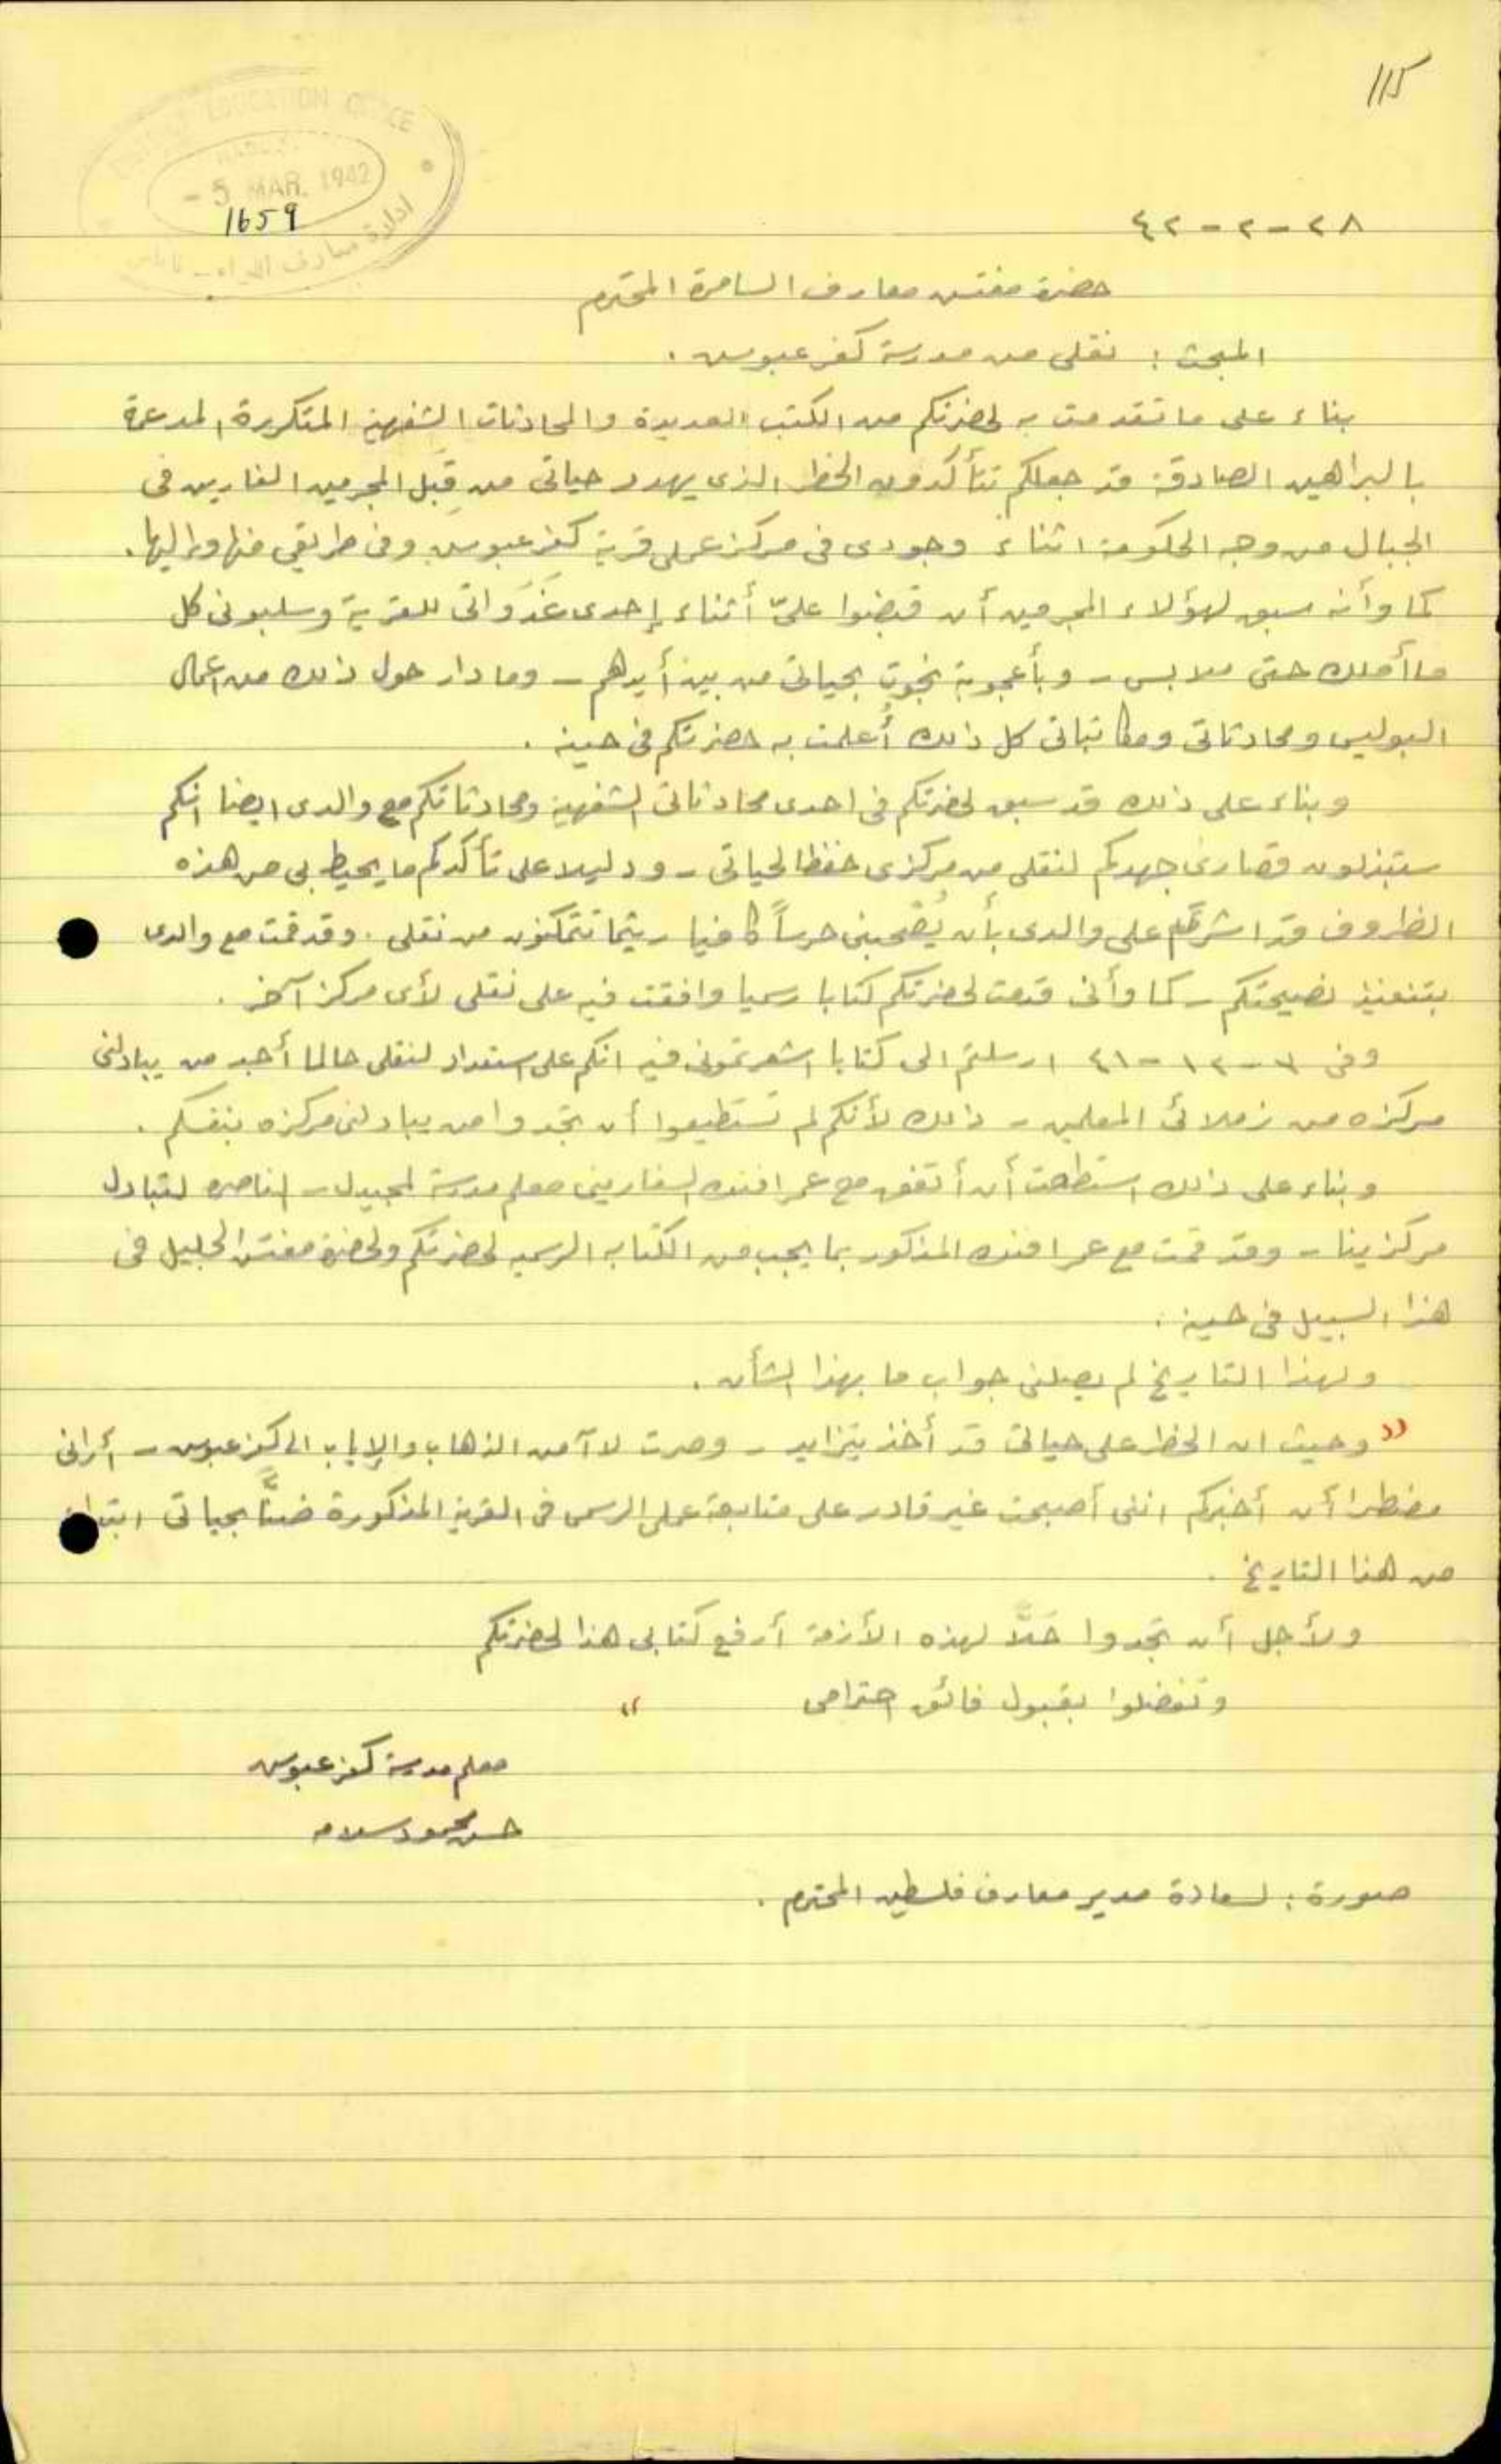 115
DISTRICT EDUCATION OFFICE
NABLUS
- 5 MAR. 1942
1659
ادارة معارف اللواء - نابلس
٢٨ - ٢ - ٤٢
حضرة مفتش معارف السامرة المحترم
المبحث : نقلي من مدرسة كفر عبوس .
بناء على ما تقدمت به لحضرتكم من الكتب العديدة والمحادثات الشفهية المتكررة المدعمة
بالبراهين الصادقة قد جعلكم تتأكدون الخطر الذي يهدد حياتي من قِبَل المجرمين الفارين في
الجبال من وجه الحكومة اثناء وجودي في مركز عملي قرية كفر عبوس وفي طريقي منها واليها .
كما وأنه سبق لهؤلاء المجرمين أن قبضوا عليّ أثناء إحدى غَدَواتي للقرية وسلبوني كل
ما أملك حتى ملابسي - وبأعجوبة نجوت بحياتي من بين أيديهم - وما دار حول ذلك من اعمال
البوليس ومحادثاتي ومكاتباتي كل ذلك أُعلمت به حضرتكم في حينه .
وبناء على ذلك قد سبق لحضرتكم في احدى محادثاتي الشفهية ومحادثاتكم مع والدي ايضا انكم
ستبذلون قصارى جهدكم لنقلي من مركزي حفظا لحياتي - ودليلا على تأكدكم ما يحيط بي من هذه
الظروف قد اشرتم على والدي بأن يُصحبني حرساً كافيا ريثما تتمكنون من نقلي . وقد قمت مع والدي
بتنفيذ نصيحتكم - كما وأني قدمت لحضرتكم كتابا رسميا وافقت فيه على نقلي لأي مركز آخر .
وفي ٧ - ١٢ - ٤١ ارسلتم الى كتابا اشعرتموني فيه انكم على استعداد لنقلي حالما أجد من يبادلني
مركزه من زملائي المعلمين - ذلك لأنكم لم تستطيعوا أن تجدوا من يبادلني مركزه بنفسكم .
وبناء على ذلك استطعت أن أتفق مع عمر افندي السفاريني معلم مدرسة المجيدل - الناصره لتبادل
مركزينا - وقد قمت مع عمر افندي المذكور بما يجب من الكتابه الرسميه لحضرتكم ولحضرة مفتش الجليل في
هذا السبيل في حينه .
ولهذا التاريخ لم يصلني جواب ما بهذا الشأن .
" وحيث ان الخطر على حياتي قد أخذ يتزايد - وصرت لا آمن الذهاب والإياب الى كفر عبوس - أراني
مضطرا أن أخبركم انني أصبحت غير قادر على متابعة عملي الرسمي في القرية المذكورة ضنّاً بحياتي ابتداء
من هذا التاريخ .
ولأجل أن تجدوا حَلّاً لهذه الأزمة أرفع كتابي هذا لحضرتكم
وتفضلوا بقبول فائق احترامي "
معلم مدرسة كفر عبوس
حسن محمود سلامه
صورة : لسعادة مدير معارف فلسطين المحترم .